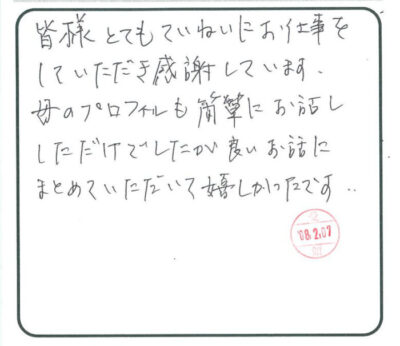 皆様とてもていねいにお仕事を
していただき感謝しています.
母のプロフィルも簡単にお話し
しただけでしたが良いお話に
まとめていただいて嬉しかったです..
'08.2.07